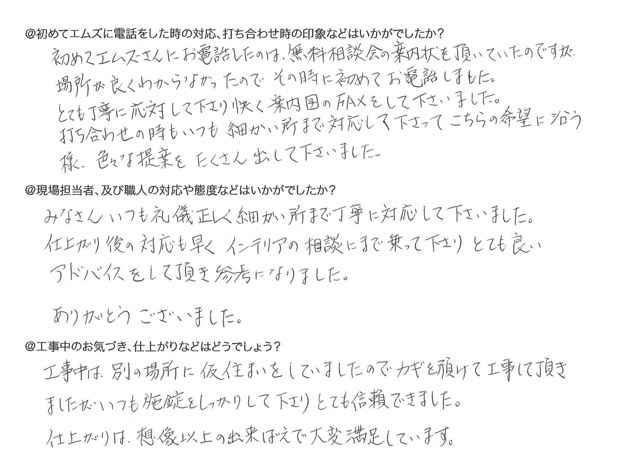 @初めてエムズに電話をした時の対応、打ち合わせ時の印象などはいかがでしたか?
初めてエムズさんにお電話したのは、無料相談会の案内状を頂いていたのですが
場所が良くわからなかったので その時に初めてお電話しました。
とても丁寧に応対して下さり快く案内図のFAXをして下さいました。
打ち合わせの時もいつも 細かい所まで対応して下さって こちらの希望に沿う
様、色々な提案を たくさん出して下さいました。
@現場担当者、及び職人の対応や態度などはいかがでしたか?
みなさん いつも礼儀正しく細かい所まで丁寧に対応して下さいました。
仕上がり後の対応も早く インテリアの相談にまで乗って下さり とても良い
アドバイスをして頂き参考になりました。
ありがとう ございました。
@工事中のお気づき、仕上がりなどはどうでしょう?
工事中は、別の場所に仮住まいをしていましたのでカギを預けて工事して頂き
ましたが いつも施錠をしっかりして下さり とても信頼できました。
仕上がりは、想像以上の出来ばえで大変満足しています。